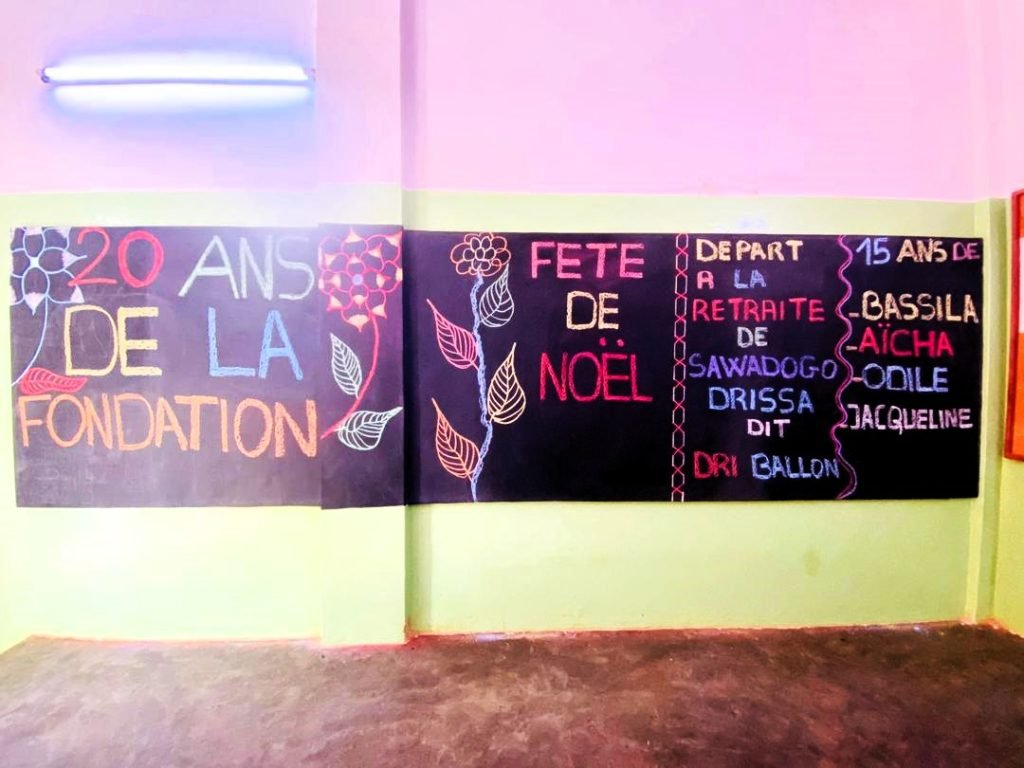 20 ANS
DE LA
FONDATION
FETE
DE
NOËL
DEPART
A LA
RETRAITE
DE
SAWADOGO
DRISSA
DIT
DRI BALLON
15 ANS DE
-BASSILA
-AÏCHA
-ODILE
-JACQUELINE